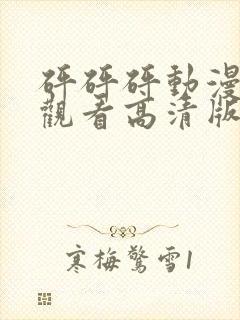 砰砰砰動漫
觀看高清版
寒梅驚雪1